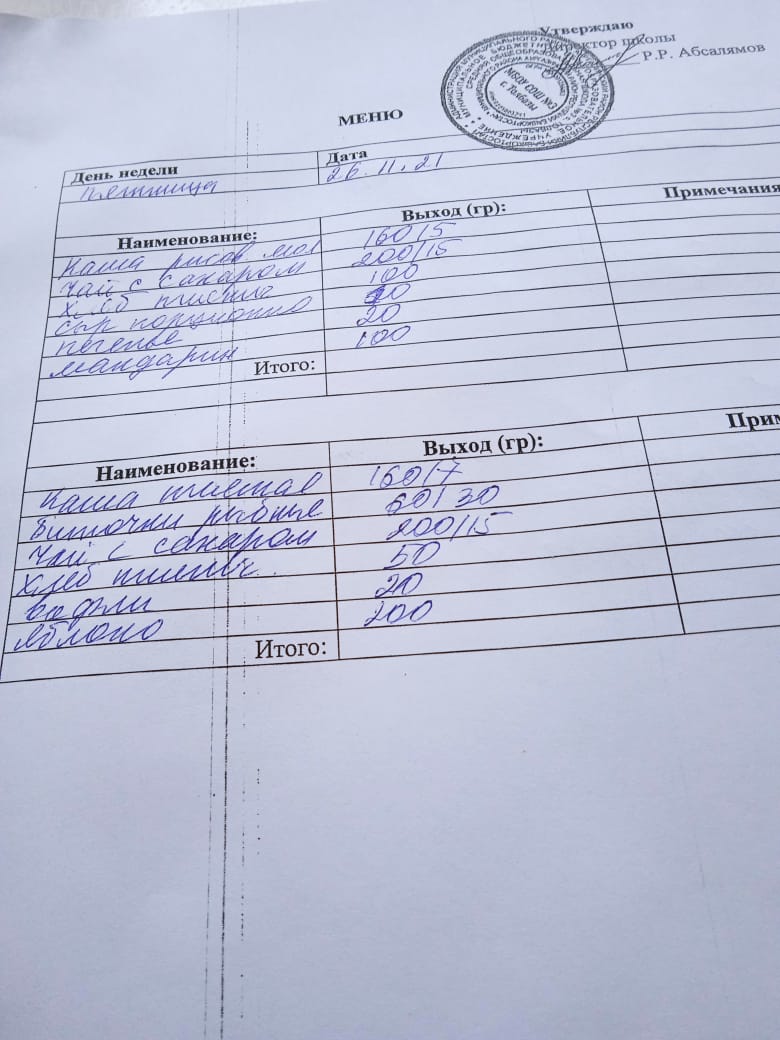 Утверждаю
Директор школы
Р.Р. Абсалямов
МБОУ СОШ №2
с. Толбазы
МЕНЮ
День недели Дата
пятница 26.11.21
Наименование: Выход (гр): Примечания
Каша рисов мол 160/5
Чай с сахаром 200/15
Хлеб пшенич 100
Сыр порционно
печенье 20
мандарин 100
Итого:
Наименование: Выход (гр): Прим
Каша пшенная 160/7
Биточки рыбные 60/30
Чай с сахаром 200/15
Хлеб пшенич. 50
вафли 20
яблоко 200
Итого: